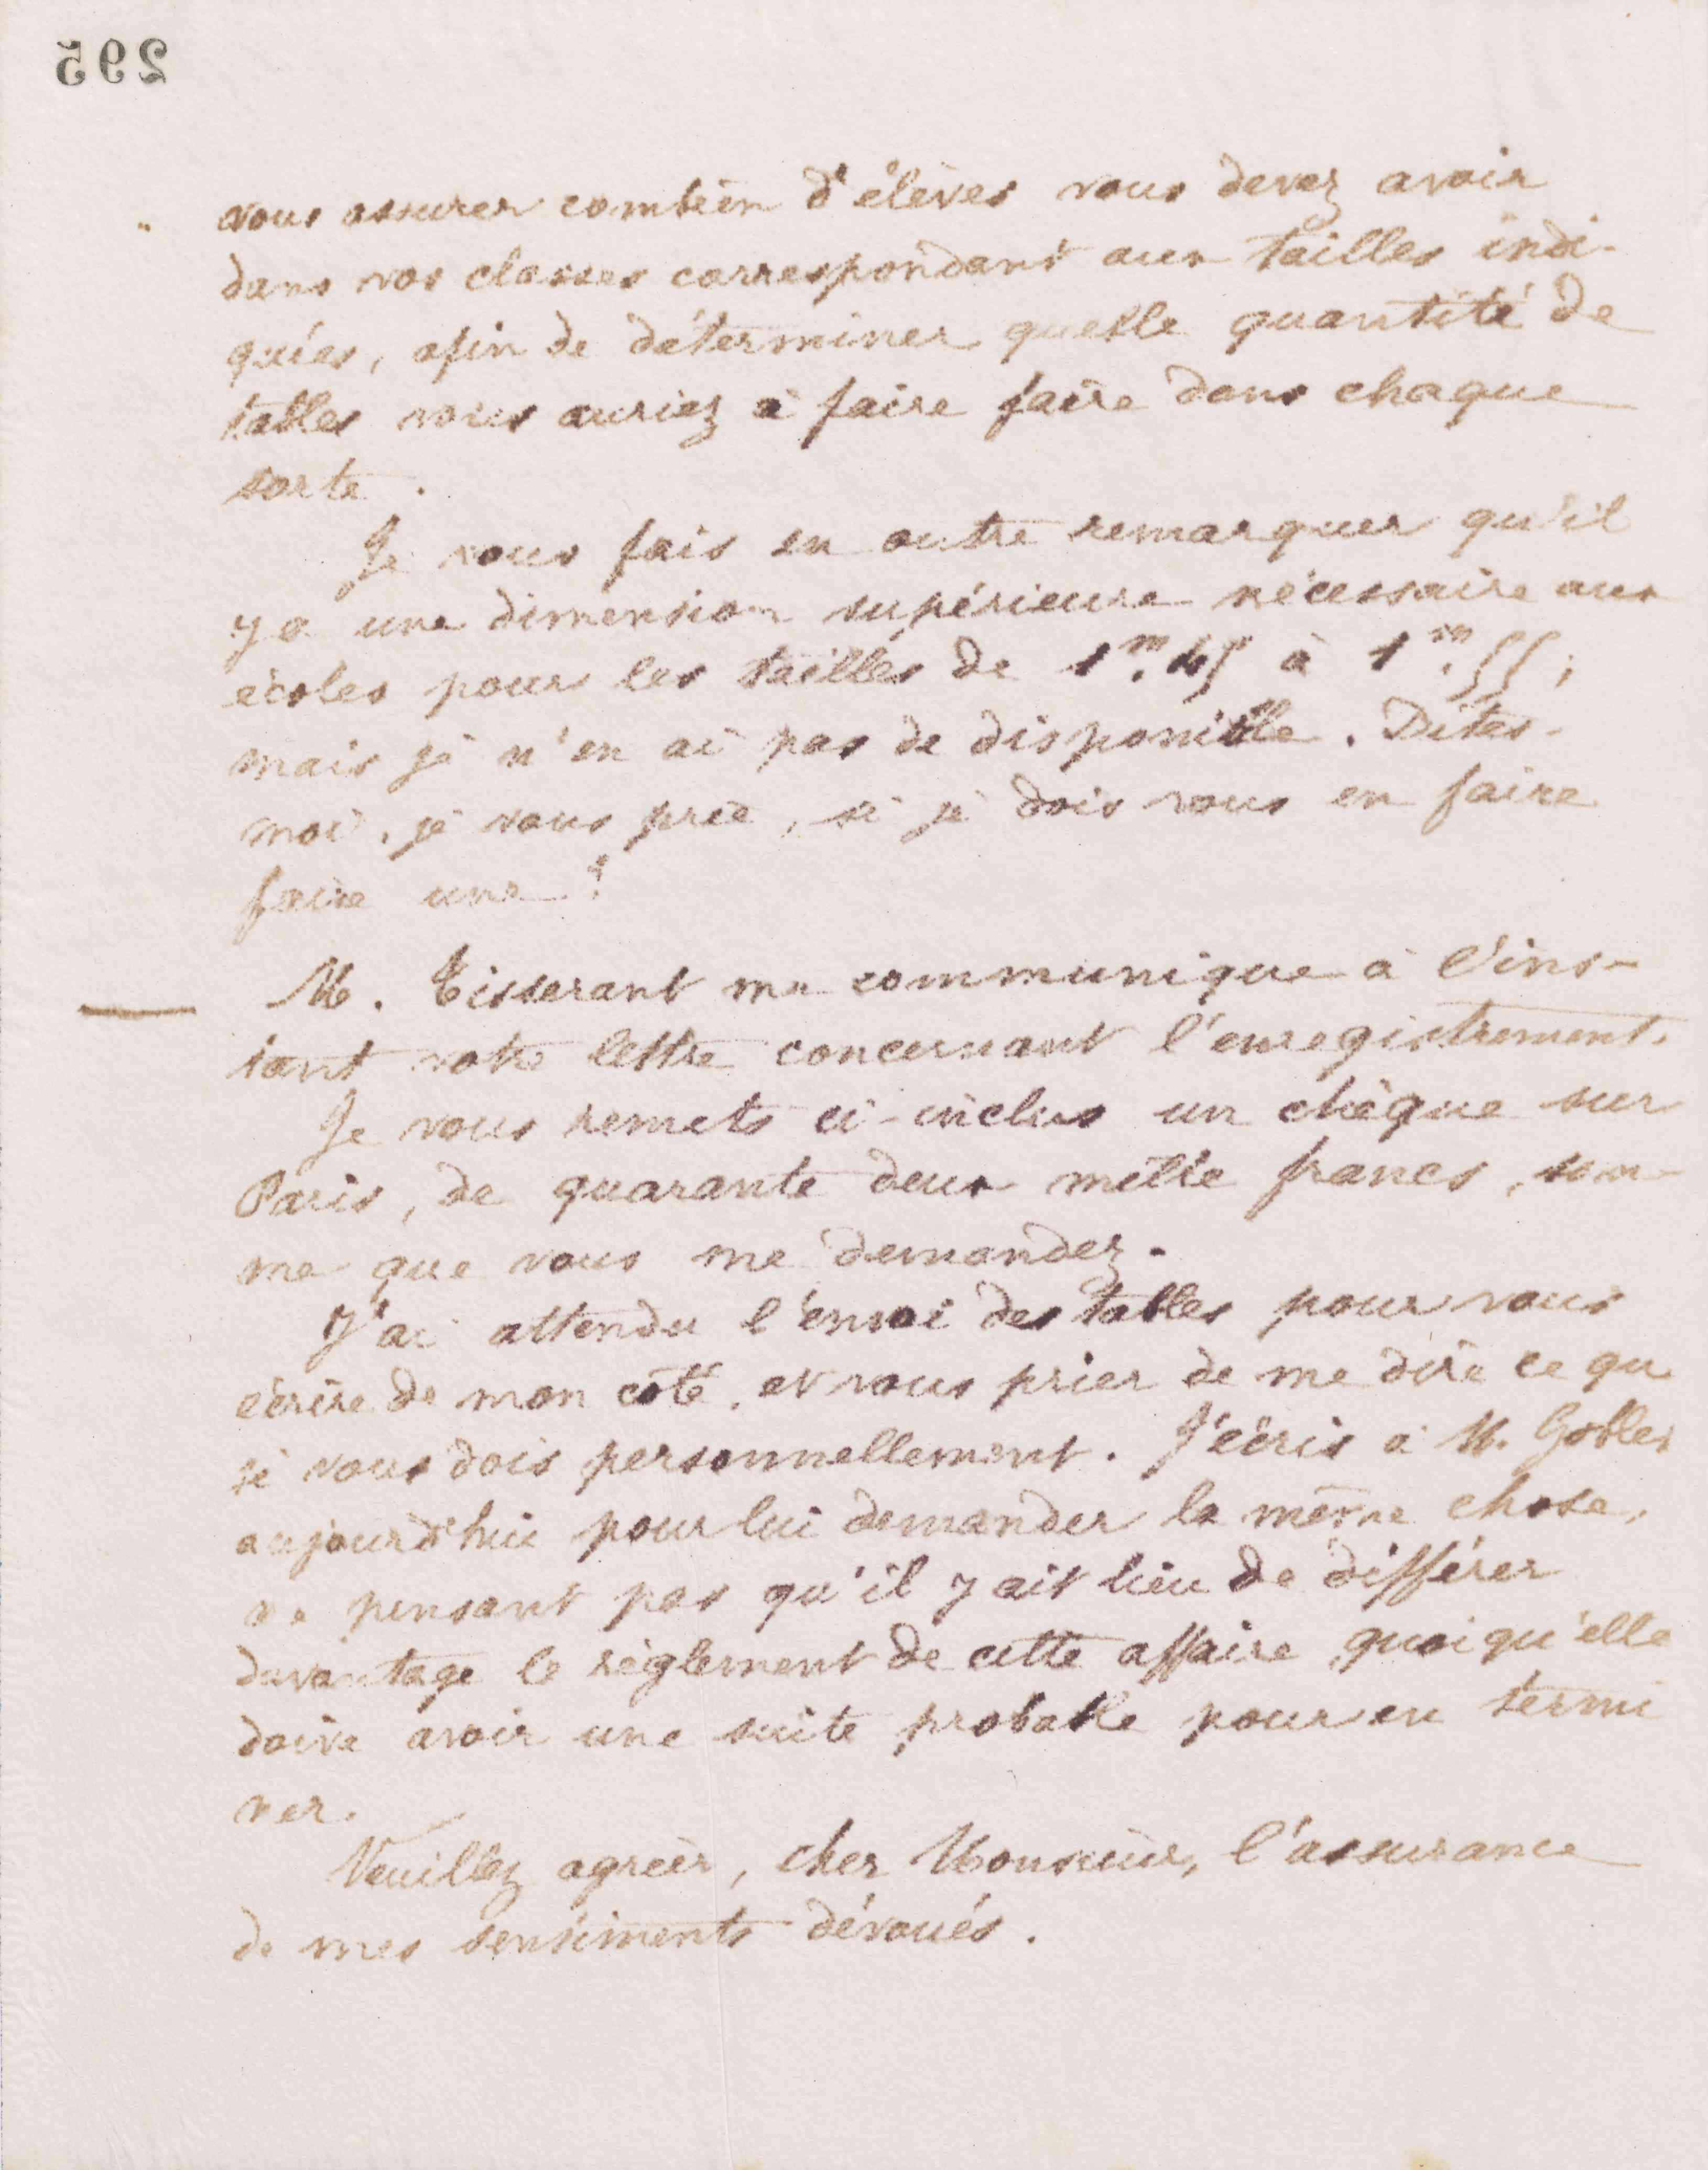 295
vous assurer combien d'élèves vous devez avoir
dans vos classes correspondant aux tailles indi-
quées, afin de déterminer quelle quantité de
tables vous auriez à faire faire dans chaque
sorte.
Je vous fais en outre remarquer qu'il
y a une dimension supérieure nécessaire aux
écoles pour les tailles de 1m.45 à 1m.55;
mais je n'en ai pas de disponible. Dites-
moi, je vous prie, si je dois vous en faire
faire une?
M. Tisserant me communique à l'ins-
tant votre lettre concernant l'enregistrement.
Je vous remets ci-inclus un chèque sur
Paris, de quarante deux mille francs, som-
me que vous me demandez.
J'ai attendu l'envoi des tables pour vous
écrire de mon côté, et vous prier de me dire ce que
je vous dois personnellement. J'écris à M.
aujourd'hui pour lui demander la même chose,
ne pensant pas qu'il y ait lieu de différer
davantage le règlement de cette affaire, quoiqu'elle
doive avoir une suite probable pour en termi
ner.
Veuillez agréer, cher Monsieur, l'assurance
de mes sentiments dévoués.